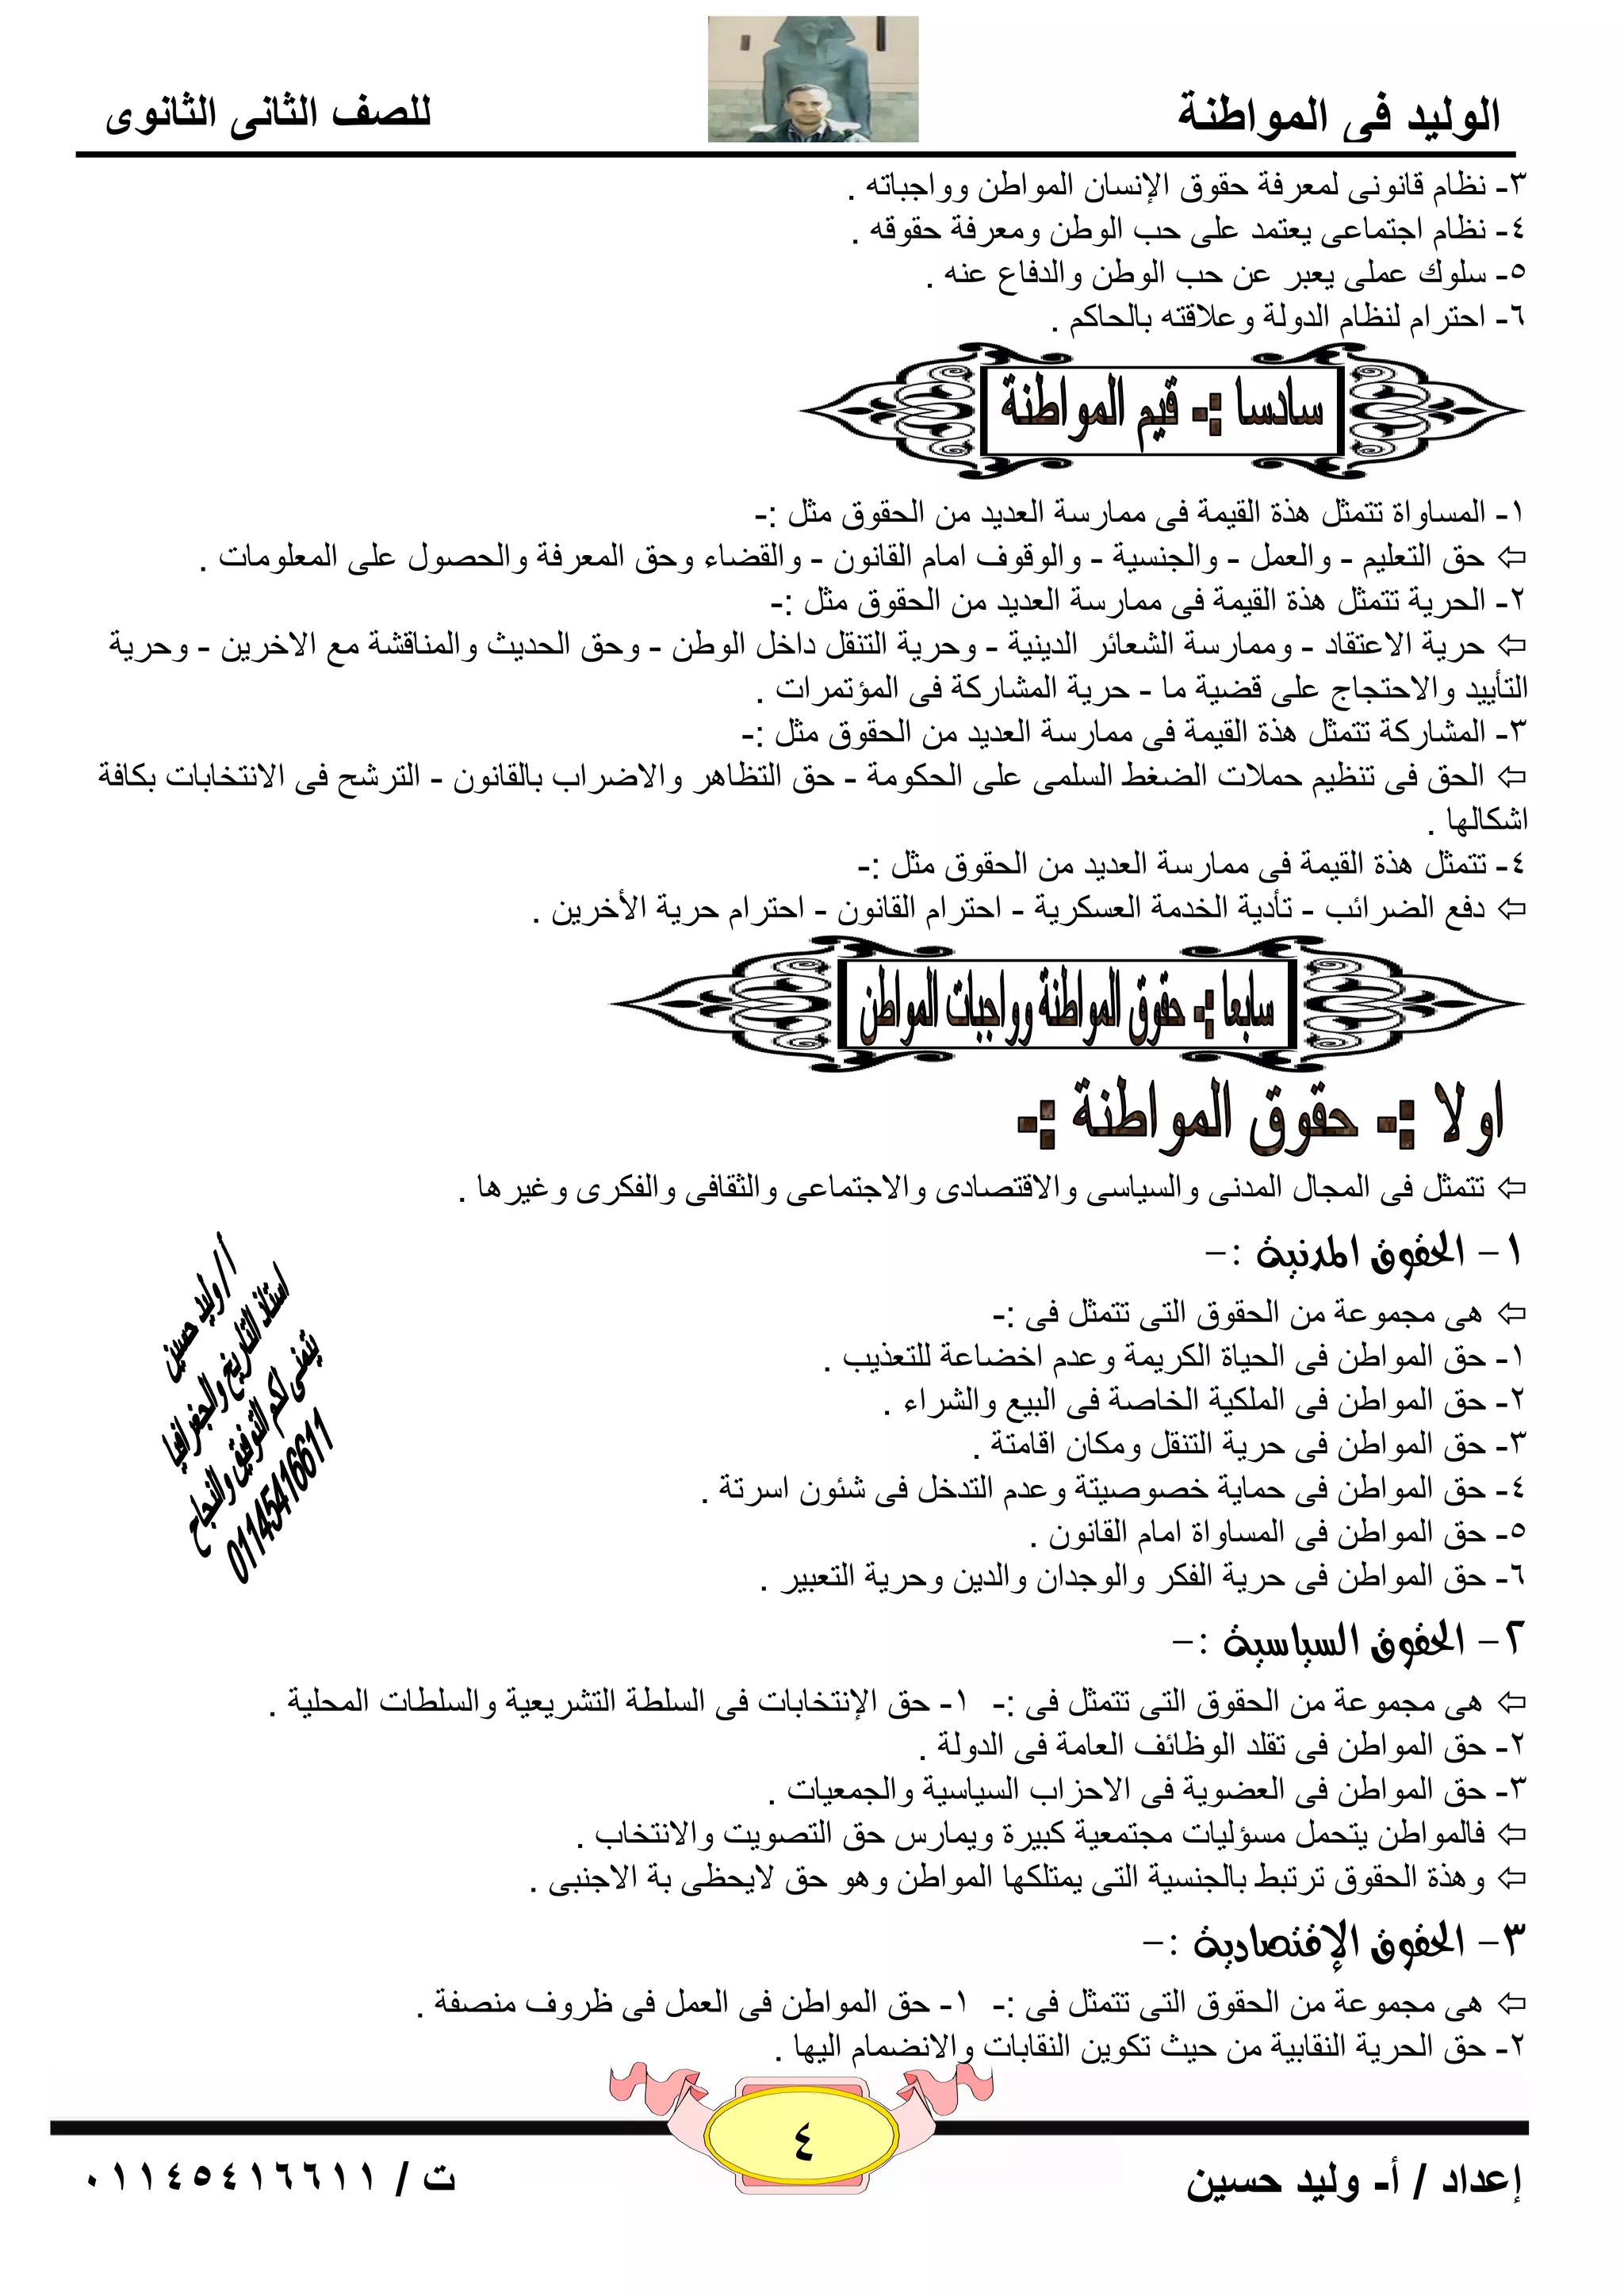 الوليد فى المواطنة
للصف الثانى الثانوى
٣- نظام قانونى لمعرفة حقوق الإنسان المواطن وواجباته .
٤- نظام اجتماعى يعتمد على حب الوطن ومعرفة حقوقه .
٥- سلوك عملى يعبر عن حب الوطن والدفاع عنه .
٦- احترام لنظام الدولة وعلاقته بالحاكم .
سادسا :- قيم المواطنة
١- المساواة تتمثل هذة القيمة فى ممارسة العديد من الحقوق مثل :-
⇦ حق التعليم - والعمل - والجنسية - والوقوف امام القانون - والقضاء وحق المعرفة والحصول على المعلومات .
٢- الحرية تتمثل هذة القيمة فى ممارسة العديد من الحقوق مثل :-
⇦ حرية الاعتقاد - وممارسة الشعائر الدينية - وحرية التنقل داخل الوطن - وحق الحديث والمناقشة مع الاخرين - وحرية
التأييد والاحتجاج على قضية ما - حرية المشاركة فى المؤتمرات .
٣- المشاركة تتمثل هذة القيمة فى ممارسة العديد من الحقوق مثل :-
⇦ الحق فى تنظيم حملات الضغط السلمى على الحكومة - حق التظاهر والاضراب بالقانون - الترشح فى الانتخابات بكافة
اشكالها .
٤- تتمثل هذة القيمة فى ممارسة العديد من الحقوق مثل :-
⇦ دفع الضرائب - تأدية الخدمة العسكرية - احترام القانون - احترام حرية الأخرين .
سابعا :- حقوق المواطنة وواجبات المواطن
اولا :- حقوق المواطنة :-
⇦ تتمثل فى المجال المدنى والسياسى والاقتصادى والاجتماعى والثقافى والفكرى وغيرها .
١- الحقوق المدنية :-
⇦ هى مجموعة من الحقوق التى تتمثل فى :-
١- حق المواطن فى الحياة الكريمة وعدم اخضاعة للتعذيب .
٢- حق المواطن فى الملكية الخاصة فى البيع والشراء .
٣- حق المواطن فى حرية التنقل ومكان اقامتة .
٤- حق المواطن فى حماية خصوصيتة وعدم التدخل فى شئون اسرتة .
٥- حق المواطن فى المساواة امام القانون .
٦- حق المواطن فى حرية الفكر والوجدان والدين وحرية التعبير .
أ/وليد حسين
استاذ التاريخ والجغرافيا
يتمنى لكم التوفيق والنجاح
01145416611
٢- الحقوق السياسية :-
⇦ هى مجموعة من الحقوق التى تتمثل فى :- ١- حق الإنتخابات فى السلطة التشريعية والسلطات المحلية .
٢- حق المواطن فى تقلد الوظائف العامة فى الدولة .
٣- حق المواطن فى العضوية فى الاحزاب السياسية والجمعيات .
⇦ فالمواطن يتحمل مسؤليات مجتمعية كبيرة ويمارس حق التصويت والانتخاب .
⇦ وهذة الحقوق ترتبط بالجنسية التى يمتلكها المواطن وهو حق لايحظى بة الاجنبى .
٣- الحقوق الإقتصادية :-
⇦ هى مجموعة من الحقوق التى تتمثل فى :- ١- حق المواطن فى العمل فى ظروف منصفة .
٢- حق الحرية النقابية من حيث تكوين النقابات والانضمام اليها .
٤
إعداد / أ- وليد حسين
ت / ٠١١٤٥٤١٦٦١١